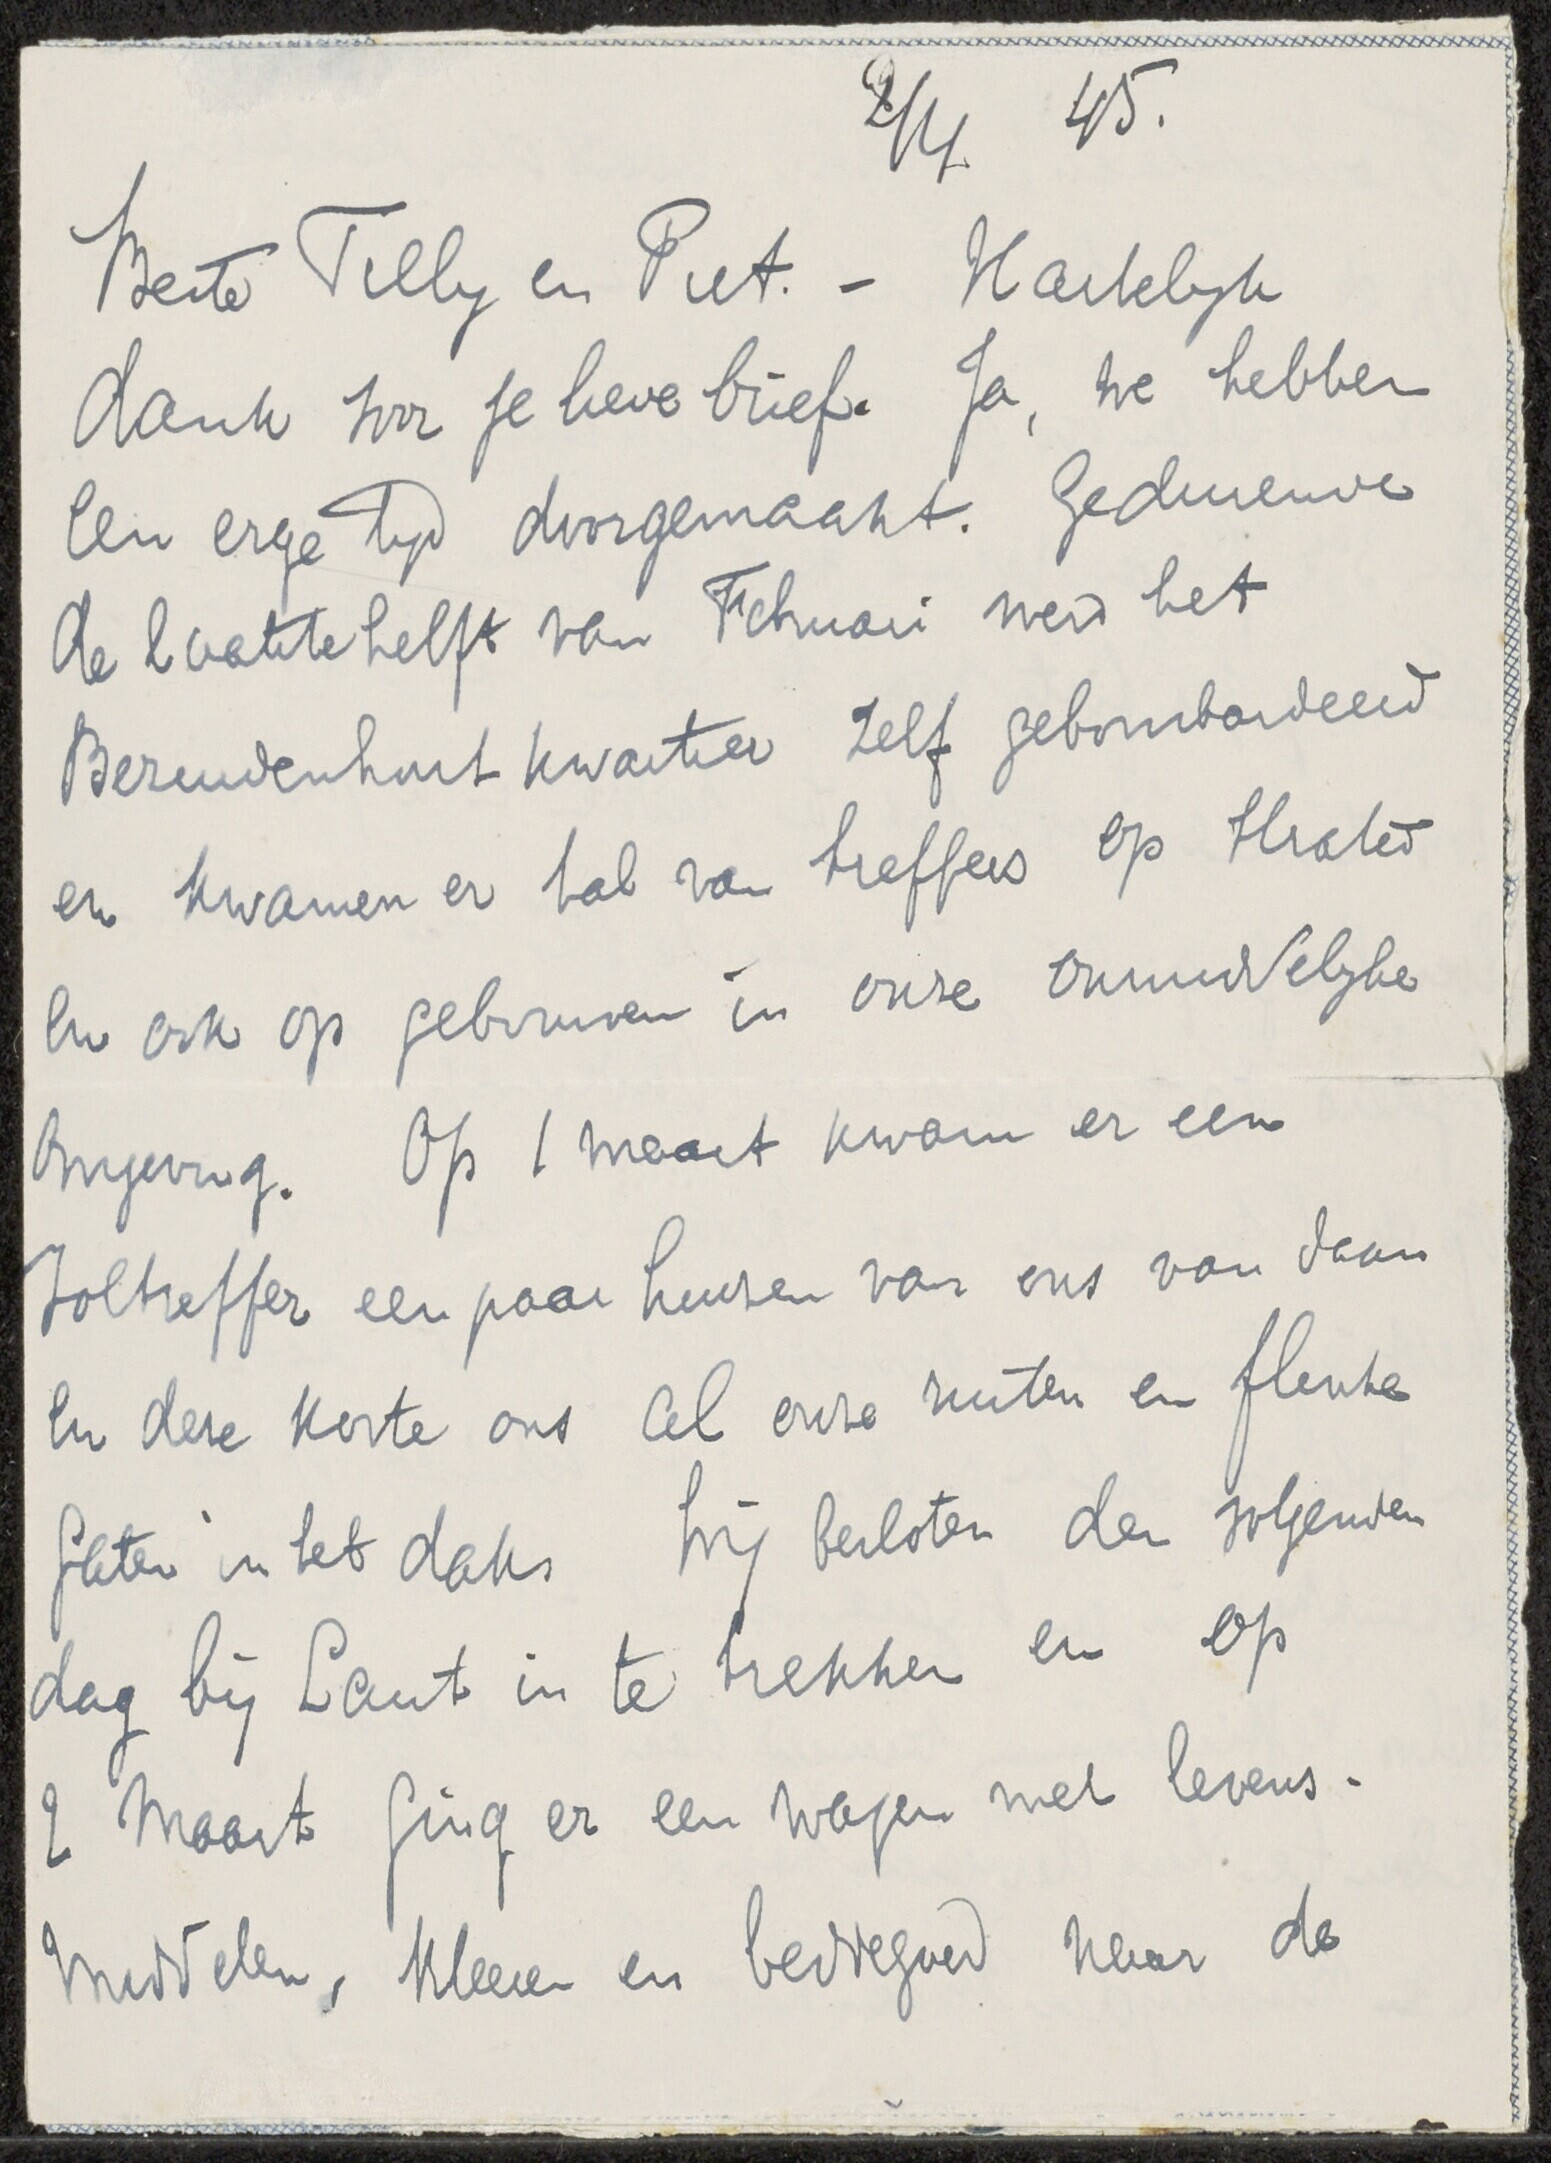 2/4 45.
Beste Tilly en Piet. - Hartelijk
dank voor je lieve brief. Ja, we hebben
een erge tijd doorgemaakt. Gedurende
de laatste helft van Februari werd het
Bezuidenhout kwartier zelf gebombardeerd
en kwamen er tal van treffers op straten
en ook op gebouwen in onze onmiddelijke
omgeving. Op 1 maart kwam er een
voltreffer een paar huizen van ons van daan
en deze kostte ons al onze ruiten en flinke
gaten in het dak. Wij besloten den volgenden
dag bij Laut in te trekken en op
2 Maart ging er een wagen met levens-
middelen, kleren en beddegoed naar de